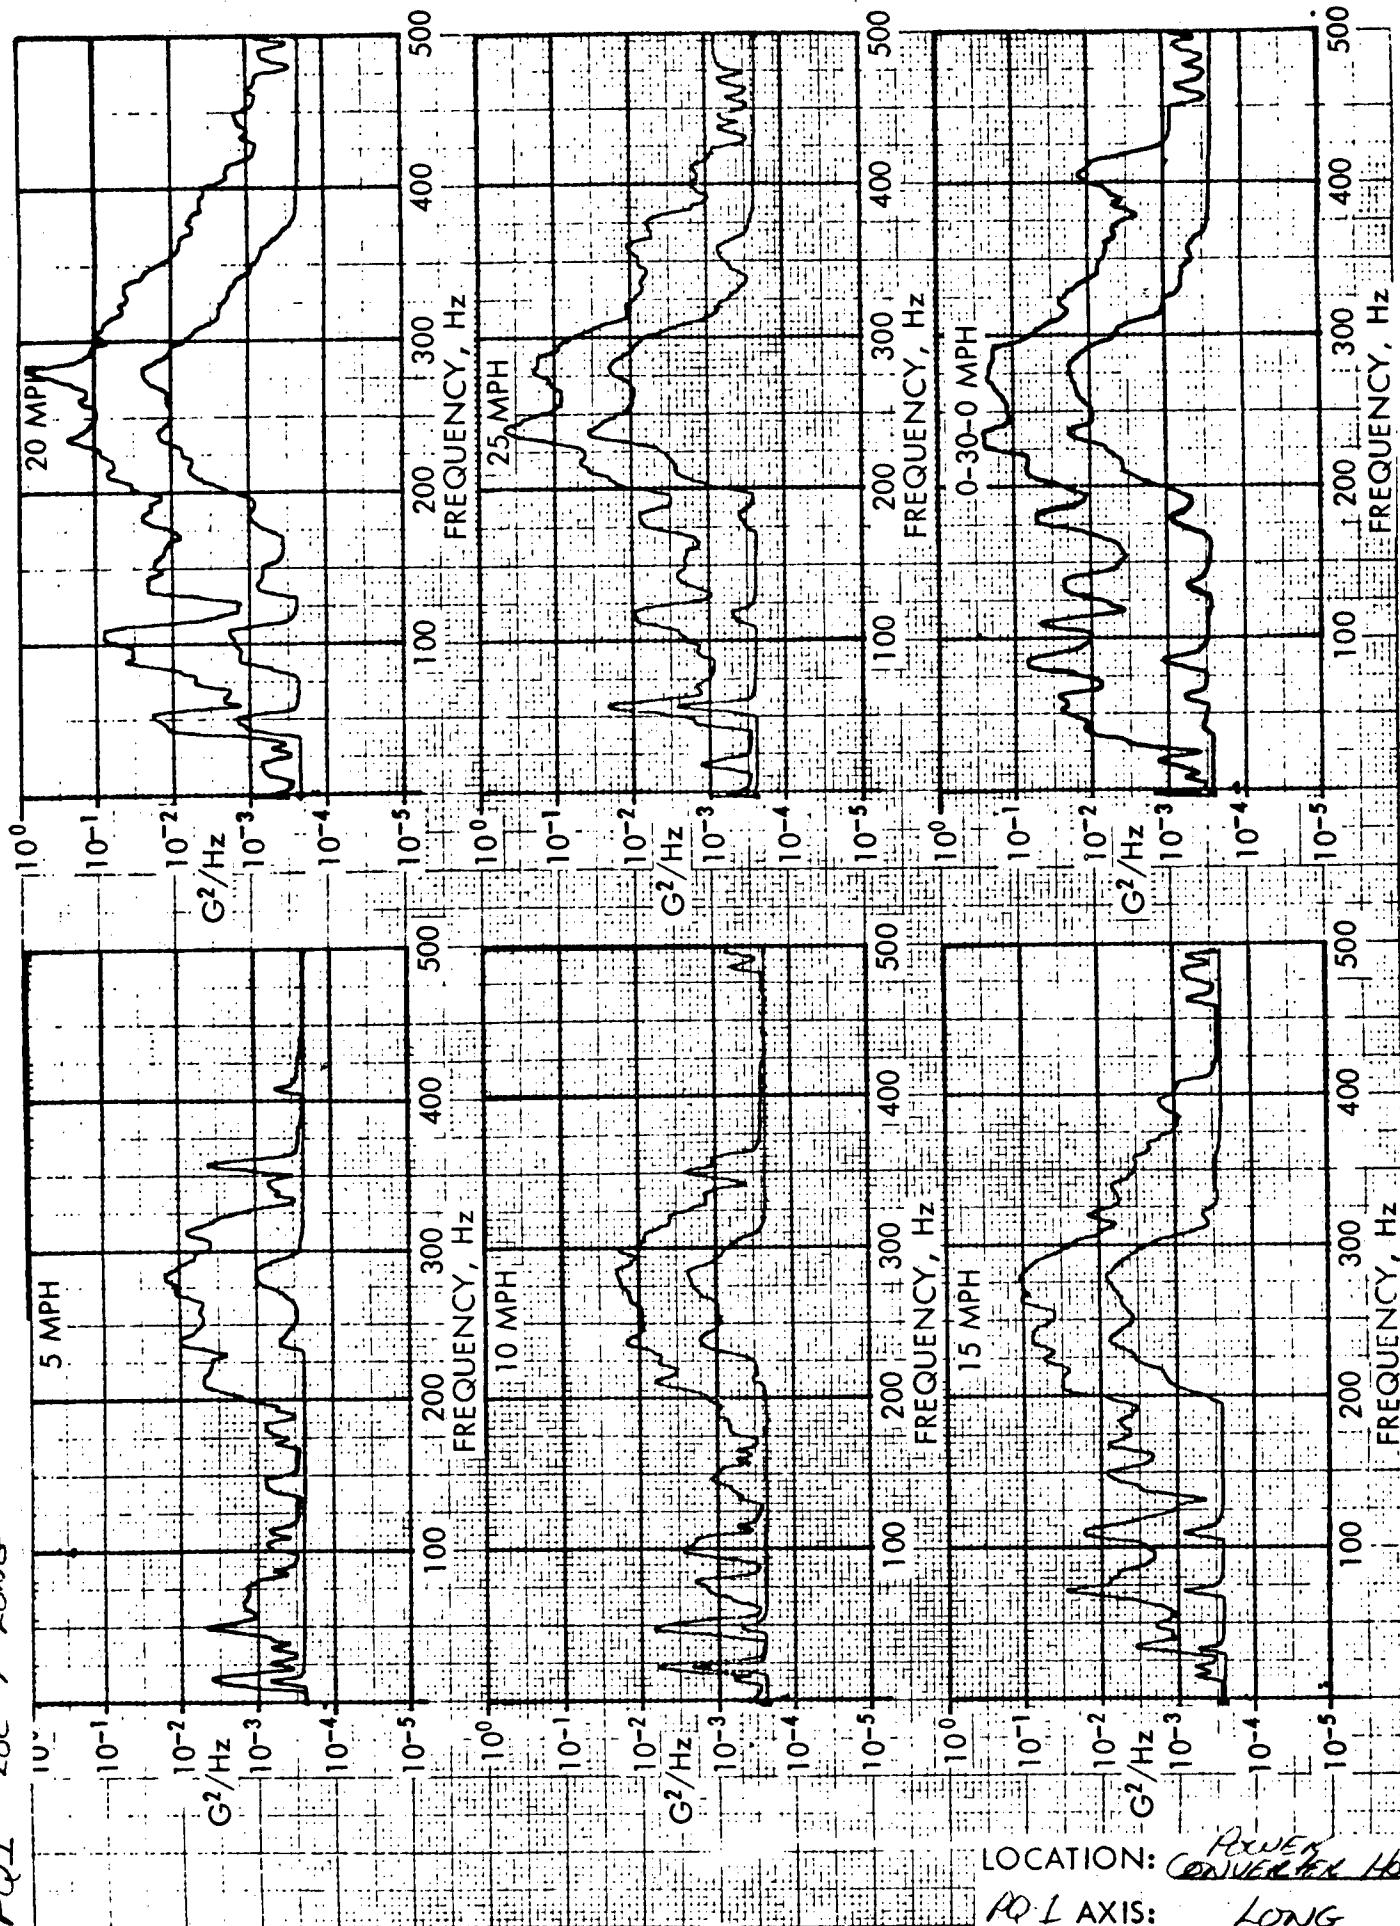 5 MPH
10⁻¹
10⁻²
G²/Hz
10⁻³
10⁻⁴
10⁻⁵
100
200
300
400
500
FREQUENCY, Hz
10 MPH
10⁰
10⁻¹
10⁻²
G²/Hz
10⁻³
10⁻⁴
10⁻⁵
100
200
300
400
500
FREQUENCY, Hz
15 MPH
10⁰
10⁻¹
10⁻²
G²/Hz
10⁻³
10⁻⁴
10⁻⁵
100
200
300
400
500
FREQUENCY, Hz
20 MPH
10⁰
10⁻¹
10⁻²
G²/Hz
10⁻³
10⁻⁴
10⁻⁵
100
200
300
400
500
FREQUENCY, Hz
25 MPH
10⁰
10⁻¹
10⁻²
G²/Hz
10⁻³
10⁻⁴
10⁻⁵
100
200
300
400
500
FREQUENCY, Hz
0-30-0 MPH
10⁰
10⁻¹
10⁻²
G²/Hz
10⁻³
10⁻⁴
10⁻⁵
100
200
300
400
500
FREQUENCY, Hz
LOCATION: POWER
CONVERTER
PQ 1 AXIS: LONG